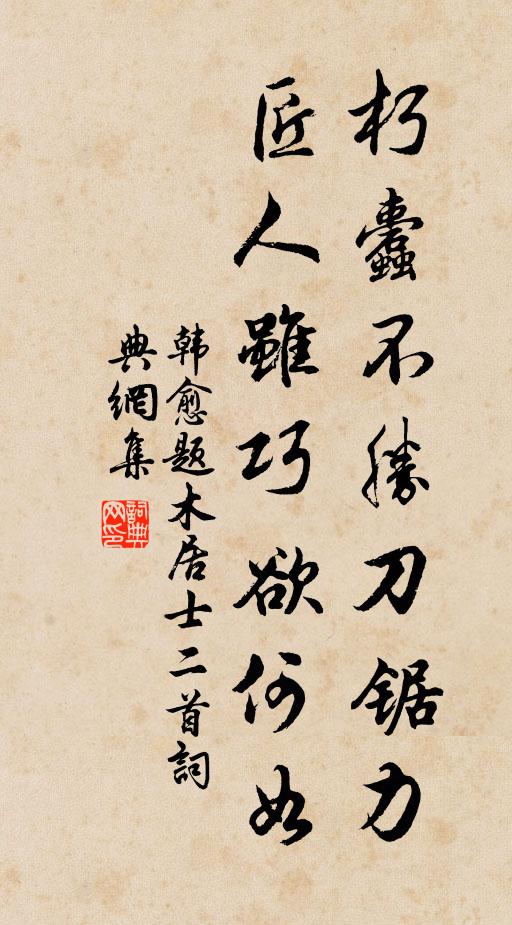 朽蠹不勝刀锯力
匠人雖巧欲何如
韩愈题木居士二首詞
典網集
詞典网印